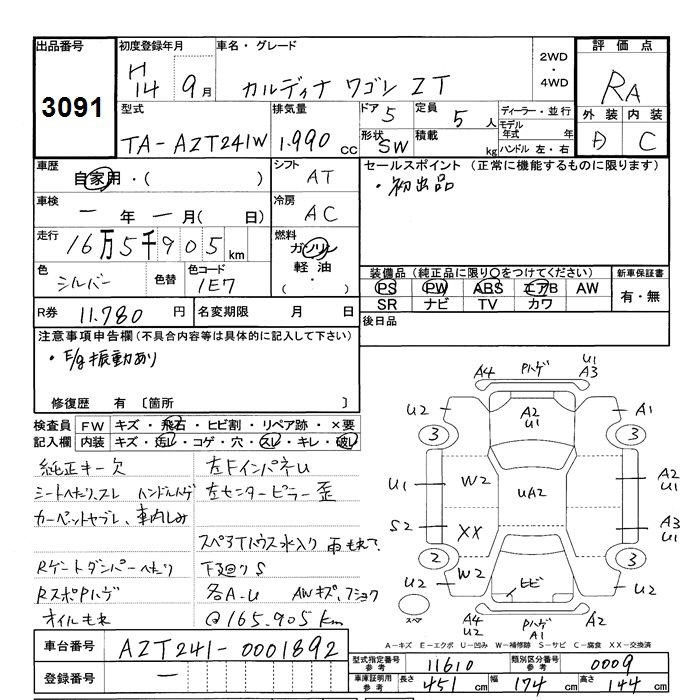 出品番号 初度登録年月 車名・グレード 2WD・4WD 評価点
3091 H14 9月 カルディナ ワゴン ZT RA
型式 排気量 ドア 5 定員 5人 ディーラー・並行 外装 内装
TA-AZT241W 1.990cc 形状 SW 積載 kg モデル年式 年 D C
ハンドル 左・右
車歴 自家用・( ) シフト AT セールスポイント (正常に機能するものに限ります)
・初出品
車検 一年一月(日) 冷房 AC
走行 16万5千905km 燃料 ガソリン
軽油
( ・ )
色 シルバー 色替 色コード 1E7
装備品(純正品に限り〇をつけてください) 新車保証書
PS PW ABS エアB AW 有・無
SR ナビ TV カワ
R券 11.780円 名変期限 月 日 後日品
注意事項申告欄(不具合内容等は具体的に記入して下さい)
・E/g振動あり
修復歴 有 〔箇所 〕
検査員記入欄 FW キズ・飛石・ヒビ割・リペア跡・×要
内装 キズ・汚レ・コゲ・穴・スレ・キレ・破レ
純正キー欠 左FインパネU
シートヘタリ、スレ ハンドルハゲ 左センターピラー歪
カーペットヤブレ、車内しみ
スペアTハウス水入り 雨もれで
Rゲートダンパーヘタリ 下廻りS
RスポPハゲ 各A-U AWキズ、フショク
オイルもれ @165.905km
A4 Pハゲ U1 A3
U2 A2 U1 A1
3 3
U1 W2 UA2 A2 U1
S2 XX A3 U1
2 W2 ヒビ 3
U2 U2
スペア A4 U2 Pハゲ A1 A2
A-キズ E-エクボ U-凹み W-補修跡 S-サビ C-腐食 XX-交換済
車台番号 AZT241-0001892
登録番号 一
型式指定番号参考 11610 類別区分番号参考 0009
車庫証明用参考 長さ 451cm 幅 174cm 高さ 144cm